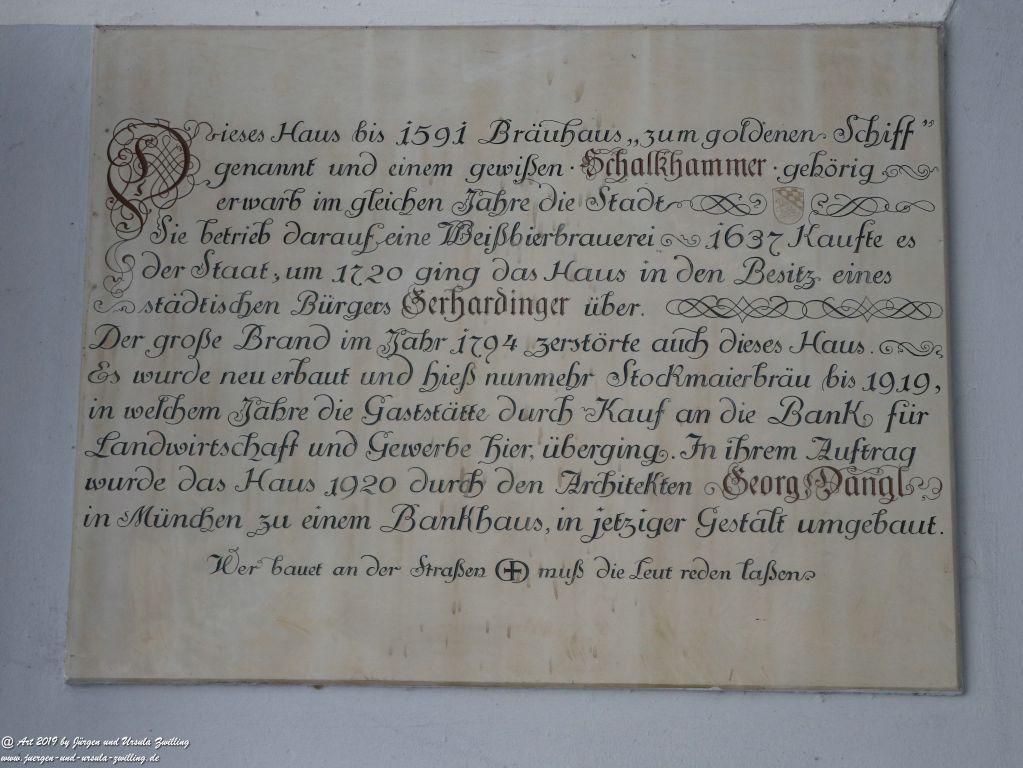 Dieses Haus bis 1591 Bräuhaus „zum goldenen Schiff”
genannt und einem gewißen · Schalkhammer · gehörig
erwarb im gleichen Jahre die Stadt
Sie betrieb darauf eine Weißbierbrauerei 1637 Kaufte es
der Staat, um 1720 ging das Haus in den Besitz eines
städtischen Bürgers Gerhardinger über.
Der große Brand im Jahr 1794 zerstörte auch dieses Haus.
Es wurde neu erbaut und hieß nunmehr Stockmaierbräu bis 1919,
in welchem Jahre die Gaststätte durch Kauf an die Bank für
Landwirtschaft und Gewerbe hier, überging. In ihrem Auftrag
wurde das Haus 1920 durch den Architekten Georg Dangl
in München zu einem Bankhaus, in jetziger Gestalt umgebaut.
Wer bauet an der Straßen muß die Leut reden laßen
@ Art 2019 by Jürgen und Ursula Zwilling
www.juergen-und-ursula-zwilling.de